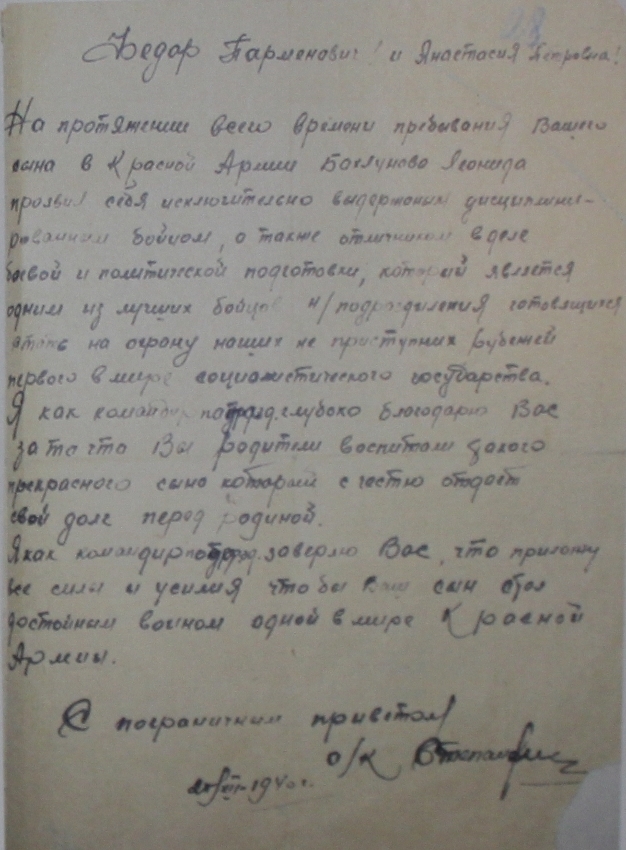 Федор Парменович! и Анастасия Петровна!
На протяжении всего времени пребывания Вашего
сына в Красной Армии Баклуново Леонида
проявил себя исключительно выдержаним дисциплини-
рованним бойцом, а также отличником в деле
боевой и политической подготовки, который является
одним из лучших бойцов н/подразделения готовящихся
стать на охрану наших не приступних рубежей
первого в мире социалистического государства.
Я как командир глубоко благодарю Вас
за то что Вы родители воспитали такого
прекрасного сына который с честью отдает
свой долг перед Родиной.
Я как командир заверяю Вас, что приложу
все силы и усилия чтобы Ваш сын стал
достойным воином одной в мире Красной
Армии.
С пограничним приветом
о/к
1940 г.